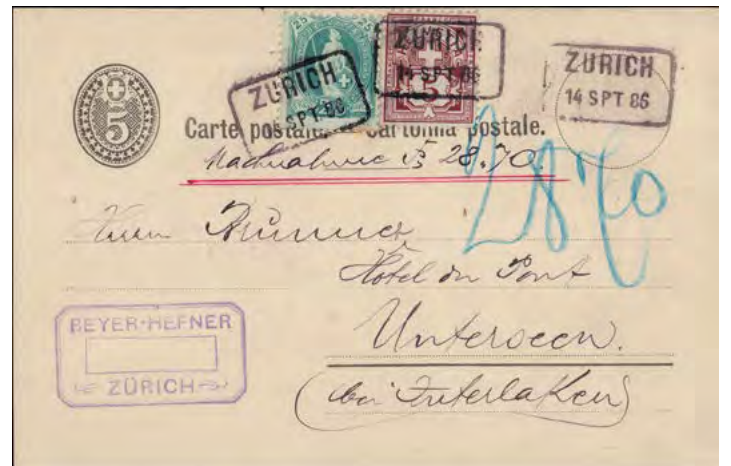 25 25
ZÜRICH
SPT 86
5
ZÜRICH
14 SPT 86
ZÜRICH
14 SPT 86
5
Carte postale. Cartolina postale.
Nachnahme 28.70
2870
Herrn Brunner
Hotel du Pont
Unterseen.
(bei Interlaken)
BEYER-HEFNER
ZÜRICH